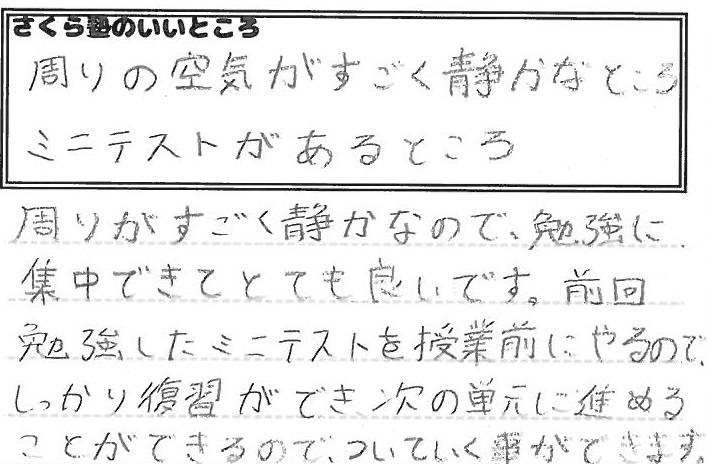 さくら塾のいいところ
周りの空気がすごく静かなところ
ミニテストがあるところ
周りがすごく静かなので、勉強に
集中できてとても良いです。前回
勉強したミニテストを授業前にやるので、
しっかり復習ができ、次の単元に進める
ことができるので、ついていく事ができます。